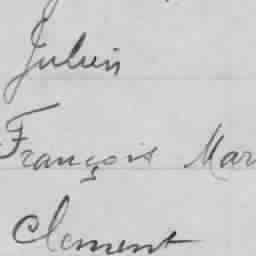 Julien
François Mar
Clement